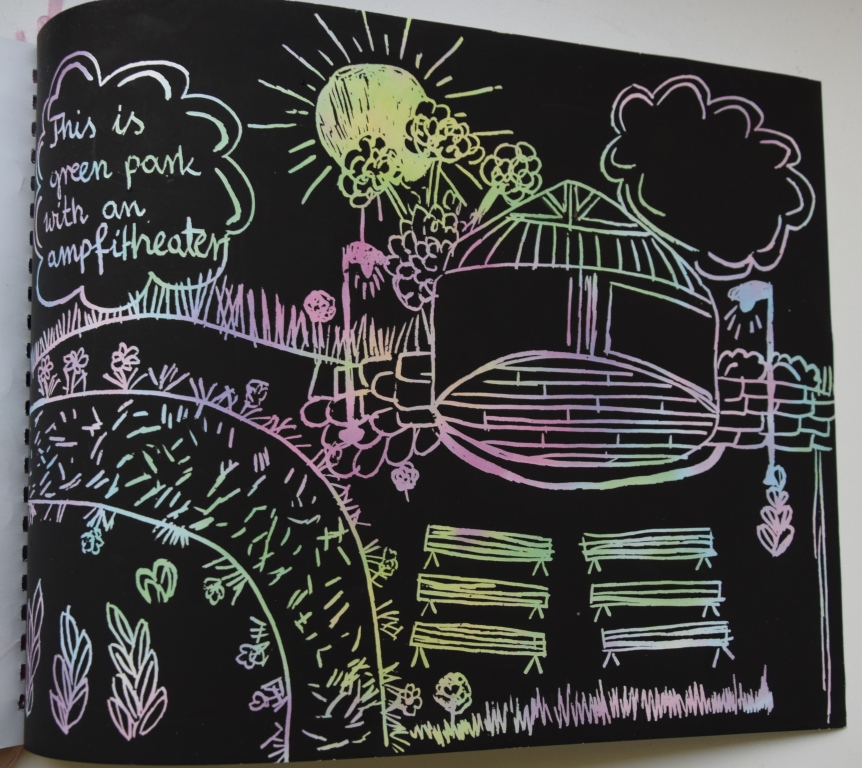 This is
green park
with an
ampfitheater